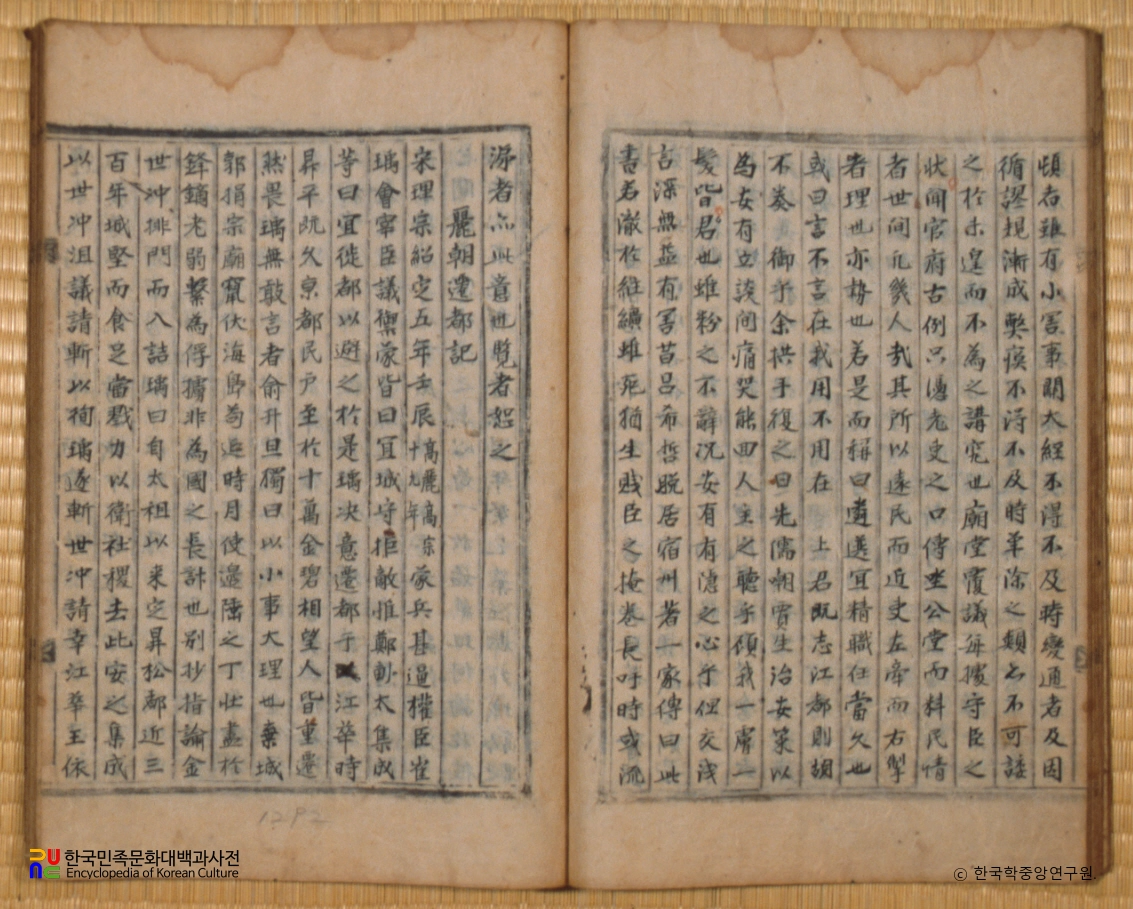 頃者雖有小害事關大經不得不及時變通者及因
循謬規漸成弊瘼不得不及時革除之類亦不可諉
之於未遑而不為之講究也廟堂覆議每據守臣之
狀聞官府古例只憑老吏之口傳坐公堂而料民情
者世間凡幾人哉其所以遠民而近吏左帝而右掣
者理也亦勢也若是而稱曰遴選宜精職任當久也
或曰言不言在我用不用在上君旣志江都則胡
不奏御乎余拱手復之曰先儒朝賈生治安策以
為安有立談間痛哭能回人主之聽乎顧我一膚一
髮皆君也雖粉之不辭况安有有隱之心乎但交淺
言深無益有害昔呂希哲晩居宿州著一家傳曰此
書若澈於維纊雖死猶生賤臣之掩卷長吁時或流
涕者亦此意也覽者恕之
麗朝遷都記
宋理宗紹定五年壬辰高麗高宗十九年蒙兵甚逼權臣崔
瑀會宰臣議禦蒙皆曰宜城守拒敵惟鄭畝太集成
等曰宜徙都以避之於是瑀决意遷都于江華時
昇平旣久京都民戶至於十萬金碧相望人皆重遷
然畏瑀無敢言者兪升旦獨曰以小事大理也棄城
郭捐宗廟竄伏海島苟延時月使邊陲之丁壯盡於
鋒鏑老弱繫為俘擄非為國之長計也別抄指諭金
世冲排門而入詰瑀曰自太祖以來定昇松都近三
百年城堅而食足當戮力以衛社稷去此安之集成
以世冲沮議請斬以徇瑀遂斬世冲請幸江華王依
1282
한국민족문화대백과사전
Encyclopedia of Korean Culture
© 한국학중앙연구원.